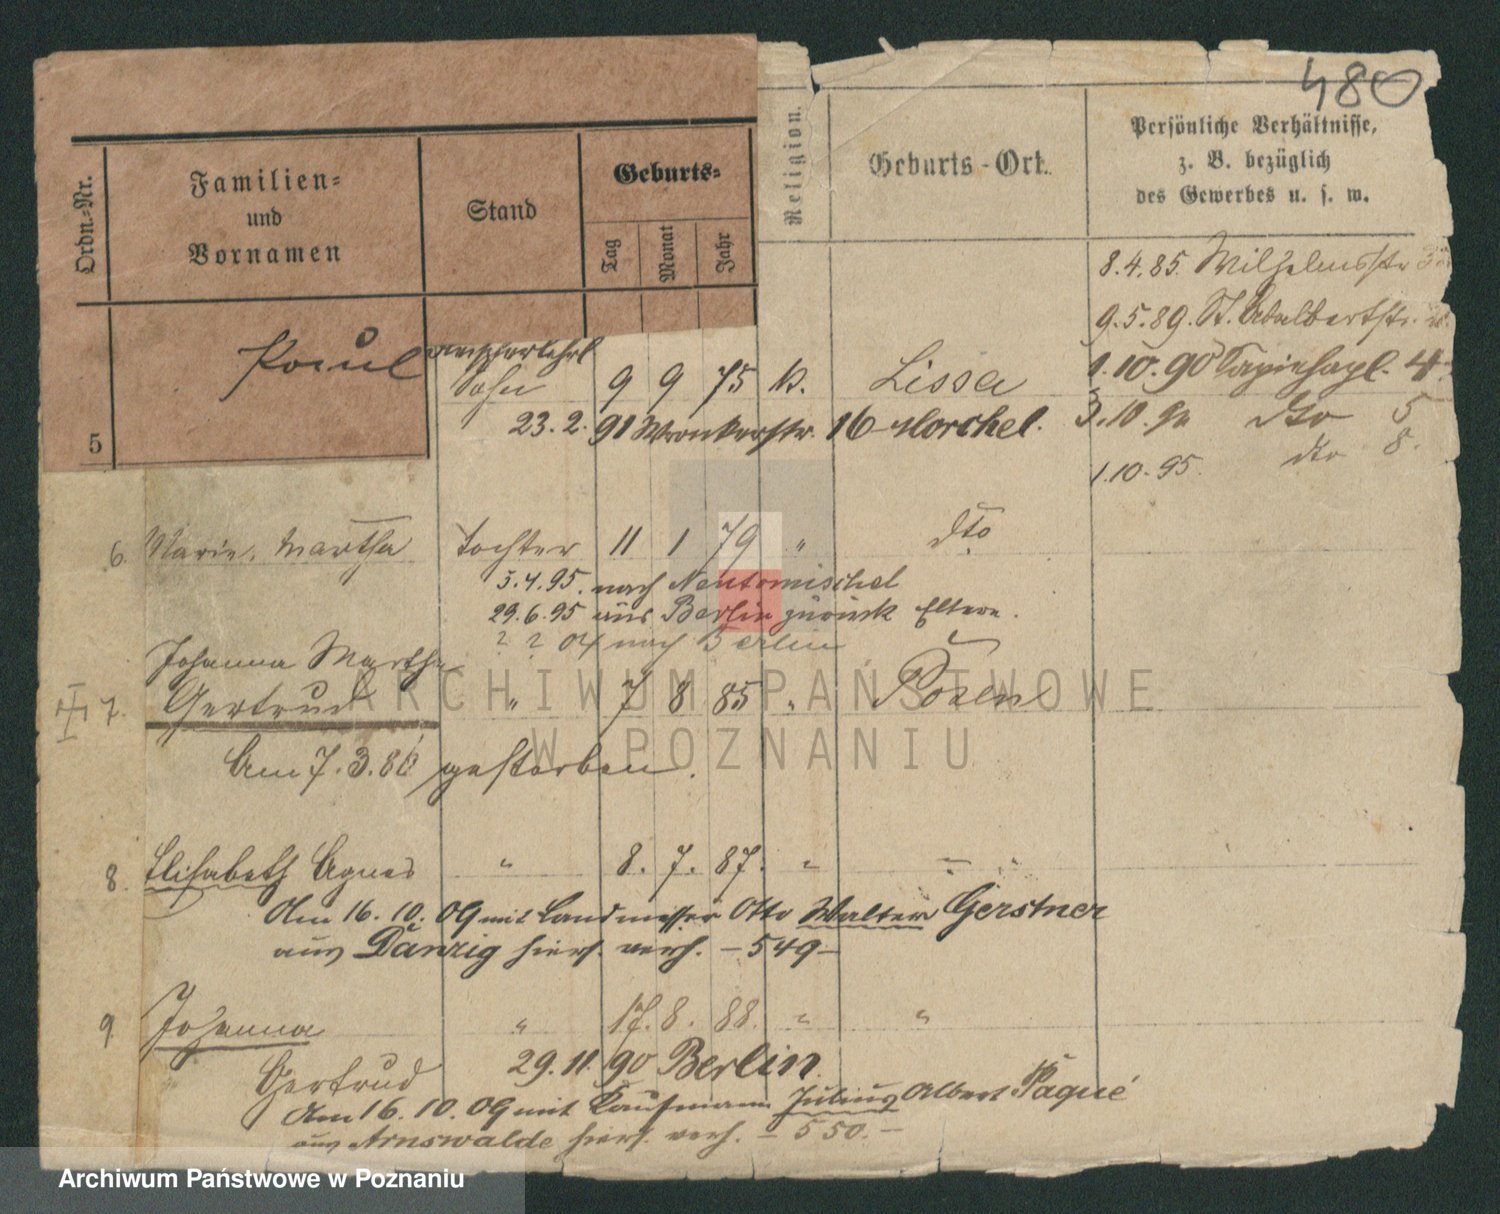 480
Ordn.-Nr.
Familien-
und
Vornamen
Stand
Geburts-
Tag
Monat
Jahr
Religion.
Geburts-Ort.
Persönliche Verhältnisse,
z. B. bezüglich
des Gewerbes u. s. w.
8.4.85. Wilhelmsstr
9.5.89. St. Adalbertstr.
1.10.90 4
3.10. dto 5
1.10.95. dto 8.
5 Paul
Sohn 9 9 75 k. Lissa
23.2.91 Wronkerstr. 16 Horchel.
6. Marie, Martha Tochter 11 1 79 " dto
3.4.95. nach Neutomischel
29.6.95 aus Berlin zurück Eltern.
? ? 04 nach Berlin
Johanna Martha
7. Gertrud " 7 8 85 " Posen
Am 7.3.86 gestorben.
8. Elisabeth Agnes " 8. 7. 87. " "
Am 16.10.09 mit Landmesser Otto Walter Gerstner
aus Danzig hies. verh. – 549 –
9. Johanna " 17. 8. 88. " "
Gertrud 29.11.90 Berlin.
Am 16.10.09 mit Kaufmann Julius Albert Paqué
aus Arnswalde hies. verh. – 550. –
ARCHIWUM PAŃSTWOWE
W POZNANIU
Archiwum Państwowe w Poznaniu